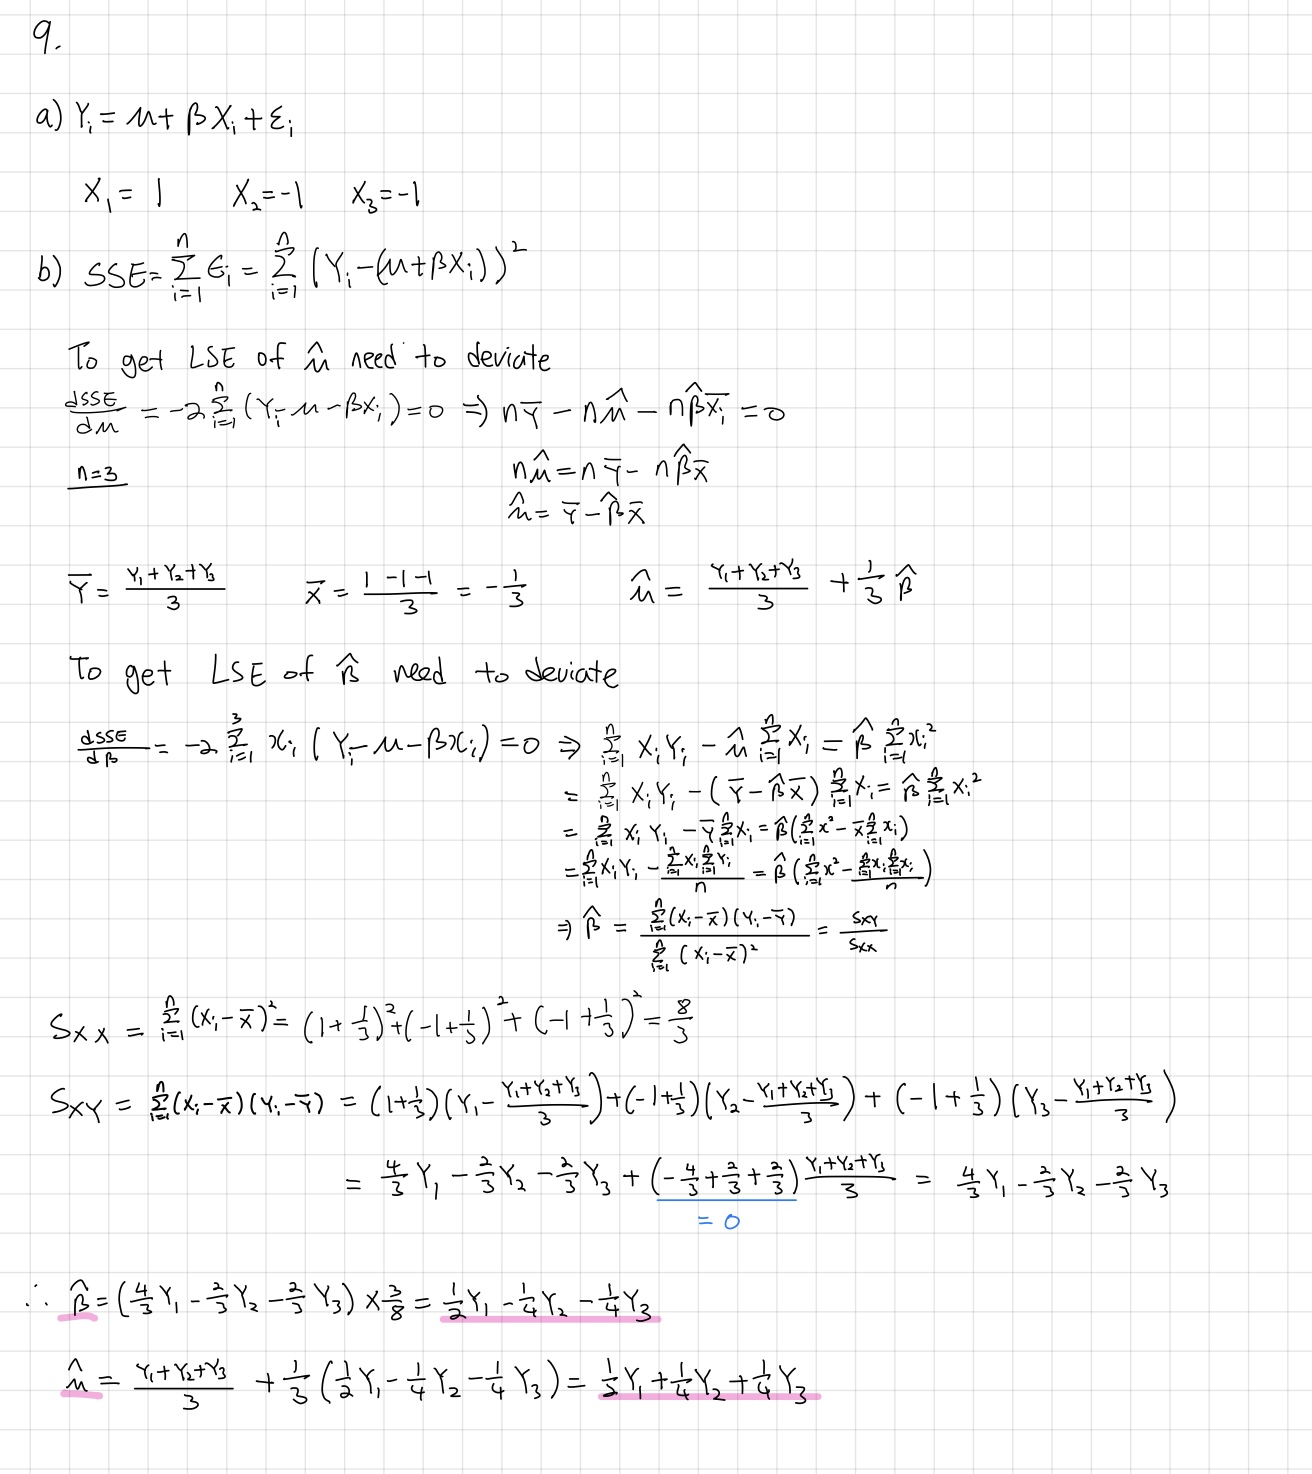 9.
a) Yᵢ = μ + βXᵢ + εᵢ
X₁ = 1 X₂ = -1 X₃ = -1
b) SSE = Σᵢ₌₁ⁿ ϵᵢ = Σᵢ₌₁ⁿ (Yᵢ - (μ + βXᵢ))²
To get LSE of μ̂ need to deviate
dSSE/dμ = -2 Σᵢ₌₁ⁿ (Yᵢ - μ - βXᵢ) = 0 ⇒ nȲ - nμ̂ - nβ̂X̄ᵢ = 0
n=3 nμ̂ = nȲ - nβ̂X̄
μ̂ = Ȳ - β̂X̄
Ȳ = (Y₁+Y₂+Y₃)/3 X̄ = (1-1-1)/3 = -1/3 μ̂ = (Y₁+Y₂+Y₃)/3 + 1/3 β̂
To get LSE of β̂ need to deviate
dSSE/dβ = -2 Σᵢ₌₁³ xᵢ (Yᵢ - μ - βxᵢ) = 0 ⇒ Σᵢ₌₁ⁿ XᵢYᵢ - μ̂ Σᵢ₌₁ⁿ Xᵢ = β̂ Σᵢ₌₁ⁿ xᵢ²
= Σᵢ₌₁ⁿ XᵢYᵢ - (Ȳ - β̂X̄) Σᵢ₌₁ⁿ Xᵢ = β̂ Σᵢ₌₁ⁿ Xᵢ²
= Σᵢ₌₁ⁿ XᵢYᵢ - Ȳ Σᵢ₌₁ⁿ Xᵢ = β̂ (Σᵢ₌₁ⁿ x² - X̄ Σᵢ₌₁ⁿ xᵢ)
= Σᵢ₌₁ⁿ XᵢYᵢ - (Σᵢ₌₁ⁿ Xᵢ Σᵢ₌₁ⁿ Yᵢ)/n = β̂ (Σᵢ₌₁ⁿ x² - (Σᵢ₌₁ⁿ xᵢ Σᵢ₌₁ⁿ xᵢ)/n)
⇒ β̂ = Σᵢ₌₁ⁿ (Xᵢ-X̄)(Yᵢ-Ȳ) / Σᵢ₌₁ⁿ (Xᵢ-X̄)² = Sxy/Sxx
Sxx = Σᵢ₌₁ⁿ (Xᵢ-X̄)² = (1+1/3)² + (-1+1/3)² + (-1+1/3)² = 8/3
Sxy = Σᵢ₌₁ⁿ (Xᵢ-X̄)(Yᵢ-Ȳ) = (1+1/3)(Y₁ - (Y₁+Y₂+Y₃)/3) + (-1+1/3)(Y₂ - (Y₁+Y₂+Y₃)/3) + (-1+1/3)(Y₃ - (Y₁+Y₂+Y₃)/3)
= 4/3 Y₁ - 2/3 Y₂ - 2/3 Y₃ + (-4/3 + 2/3 + 2/3) (Y₁+Y₂+Y₃)/3 = 4/3 Y₁ - 2/3 Y₂ - 2/3 Y₃
= 0
∴ β̂ = (4/3 Y₁ - 2/3 Y₂ - 2/3 Y₃) × 3/8 = 1/2 Y₁ - 1/4 Y₂ - 1/4 Y₃
μ̂ = (Y₁+Y₂+Y₃)/3 + 1/3 (1/2 Y₁ - 1/4 Y₂ - 1/4 Y₃) = 1/2 Y₁ + 1/4 Y₂ + 1/4 Y₃